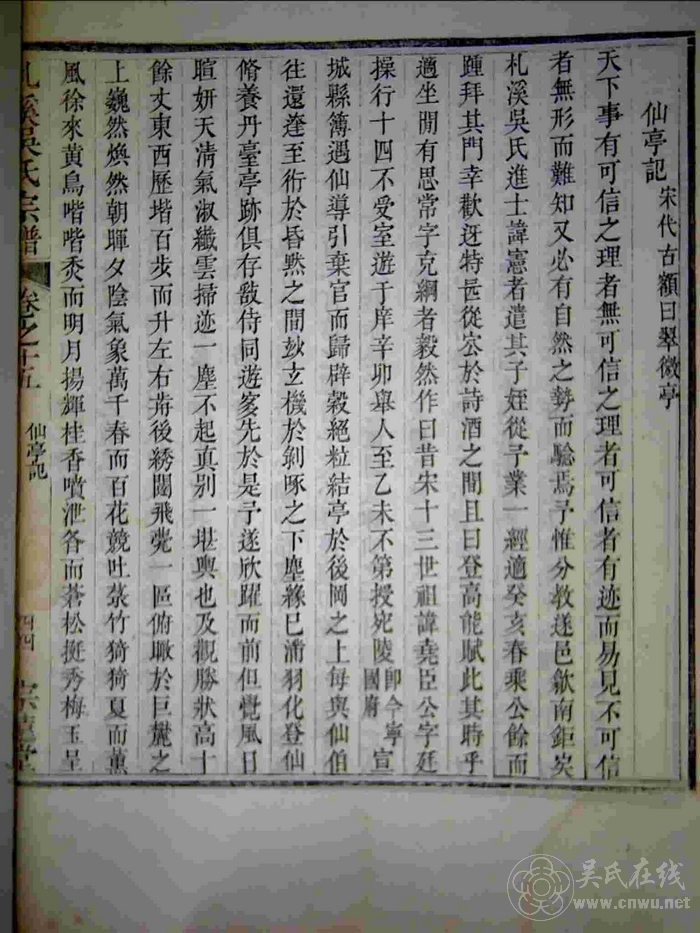 仙亭記 宋代古額曰翠微亭
天下事有可信之理者無可信之理者可信者有迹而易見不可信
者無形而難知又必有自然之勢而驗焉予惟分教遂邑歙南鉅矣
札溪吳氏進士諱憲者遣其子姪從予業一經適癸亥春乘公餘而
踵拜其門幸歡迓特甚從容於詩酒之間且曰登高能賦此其時乎
適坐間有思常字克綱者毅然作曰昔宋十三世祖諱堯臣公字廷
操行十四不受室遊于庠辛卯舉人至乙未不第授宛陵即今寧國府宣
城縣簿遇仙導引棄官而歸辟穀絕粒結亭於後岡之上每與仙伯
往還薘至術於昏黙之間玅玄機於剝啄之下塵緣已滿羽化登仙
脩養丹臺亭跡俱存敢侍同遊奚先於是予遂欣躍而前但覺風日
暄妍天淸氣淑纖雲掃迹一塵不起真别一堪輿也及觀勝狀高十
餘丈東西歷堦百步而升左右荐後綉闥飛甍一區俯瞰於巨麓之
上巍然煥然朝暉夕陰氣象萬千春而百花競吐菉竹猗猗夏而薰
風徐來黄鳥喈喈秋而明月揚輝桂香噴泄冬而蒼松挺秀梅玉呈
札溪吳氏宗譜 卷之十五 仙亭記 四四
吴氏在线
www.cnwu.net